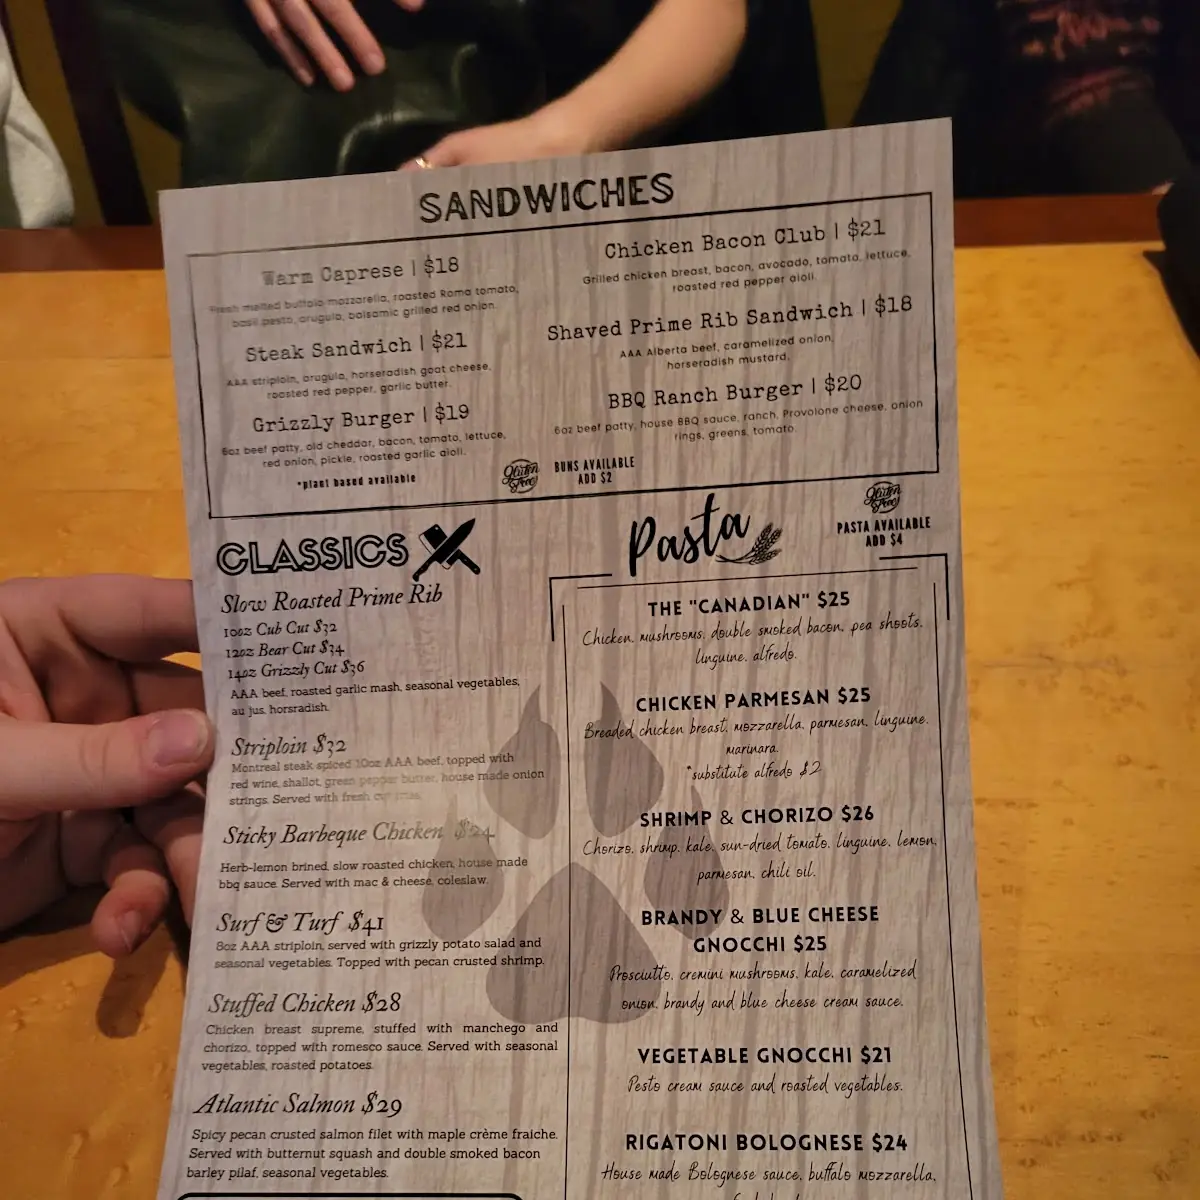 SANDWICHES
Warm Caprese | $18
Fresh melted buffalo mozzarella, roasted Roma tomato,
basil pesto, arugula, balsamic grilled red onion.
Steak Sandwich | $21
AAA striploin, arugula, horseradish goat cheese,
roasted red pepper, garlic butter.
Grizzly Burger | $19
6oz beef patty, old cheddar, bacon, tomato, lettuce,
red onion, pickle, roasted garlic aioli.
*plant based available
Chicken Bacon Club | $21
Grilled chicken breast, bacon, avocado, tomato, lettuce,
roasted red pepper aioli.
Shaved Prime Rib Sandwich | $18
AAA Alberta beef, caramelized onion,
horseradish mustard.
BBQ Ranch Burger | $20
6oz beef patty, house BBQ sauce, ranch, Provolone cheese, onion
rings, greens, tomato.
Gluten
Free
BUNS AVAILABLE
ADD $2
CLASSICS
Slow Roasted Prime Rib
10oz Cub Cut $32
12oz Bear Cut $34
14oz Grizzly Cut $36
AAA beef, roasted garlic mash, seasonal vegetables,
au jus, horsradish.
Striploin $32
Montreal steak spiced 10oz AAA beef, topped with
red wine, shallot, green pepper butter, house made onion
strings. Served with fresh cut fries.
Sticky Barbeque Chicken $24
Herb-lemon brined, slow roasted chicken, house made
bbq sauce. Served with mac & cheese, coleslaw.
Surf & Turf $41
8oz AAA striploin, served with grizzly potato salad and
seasonal vegetables. Topped with pecan crusted shrimp.
Stuffed Chicken $28
Chicken breast supreme, stuffed with manchego and
chorizo, topped with romesco sauce. Served with seasonal
vegetables, roasted potatoes.
Atlantic Salmon $29
Spicy pecan crusted salmon filet with maple crème fraiche.
Served with butternut squash and double smoked bacon
barley pilaf, seasonal vegetables.
Pasta
Gluten
Free
PASTA AVAILABLE
ADD $4
THE "CANADIAN" $25
Chicken, mushrooms, double smoked bacon, pea shoots,
linguine, alfredo.
CHICKEN PARMESAN $25
Breaded chicken breast, mozzarella, parmesan, linguine,
marinara.
*substitute alfredo $2
SHRIMP & CHORIZO $26
Chorizo, shrimp, kale, sun-dried tomato, linguine, lemon,
parmesan, chili oil.
BRANDY & BLUE CHEESE
GNOCCHI $25
Prosciutto, cremini mushrooms, kale, caramelized
onion, brandy and blue cheese cream sauce.
VEGETABLE GNOCCHI $21
Pesto cream sauce and roasted vegetables.
RIGATONI BOLOGNESE $24
House made Bolognese sauce, buffalo mozzarella,